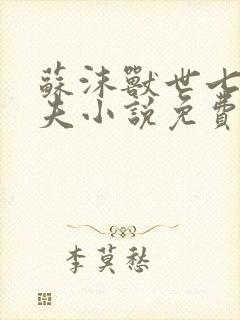 蘇沫獸世七
夫小說免費
李莫愁